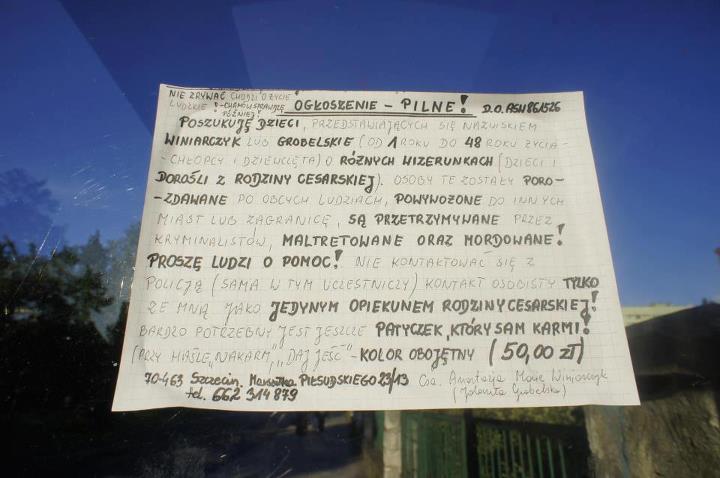 NIE ZRYWAĆ CHODZI O ŻYCIE
LUDZKIE!
PÓŹNIEJ!
OGŁOSZENIE - PILNE! D.O. ASH 861526
POSZUKUJĘ DZIECI, PRZEDSTAWIAJĄCYCH SIĘ NAZWISKIEM
WINIARCZYK LUB GROBELSKIE (OD 1 ROKU DO 48 ROKU ŻYCIA -
- CHŁOPCY I DZIEWCZĘTA) O RÓŻNYCH WIZERUNKACH (DZIECI I
DOROŚLI Z RODZINY CESARSKIEJ). OSOBY TE ZOSTAŁY PORO-
-ZDAWANE PO OBCYCH LUDZIACH, POWYWOŻONE DO INNYCH
MIAST LUB ZAGRANICĘ, SĄ PRZETRZYMYWANE PRZEZ
KRYMINALISTÓW, MALTRETOWANE ORAZ MORDOWANE!
PROSZĘ LUDZI O POMOC! NIE KONTAKTOWAĆ SIĘ Z
POLICJĄ (SAMA W TYM UCZESTNICZY) KONTAKT OSOBISTY TYLKO
ZE MNĄ JAKO JEDYNYM OPIEKUNEM RODZINY CESARSKIEJ!
BARDZO POTRZEBNY JEST JESZCZE PATYCZEK, KTÓRY SAM KARMI!
(PRZY HAŚLE „NAKARM", „DAJ JEŚĆ" - KOLOR OBOJĘTNY (50,00 zł)
70-463 Szczecin, Marszałka PIŁSUDSKIEGO 23/13 Anastazja Maria Winiarczyk
tel. 662 314 879 (Jolanta Grobelska)